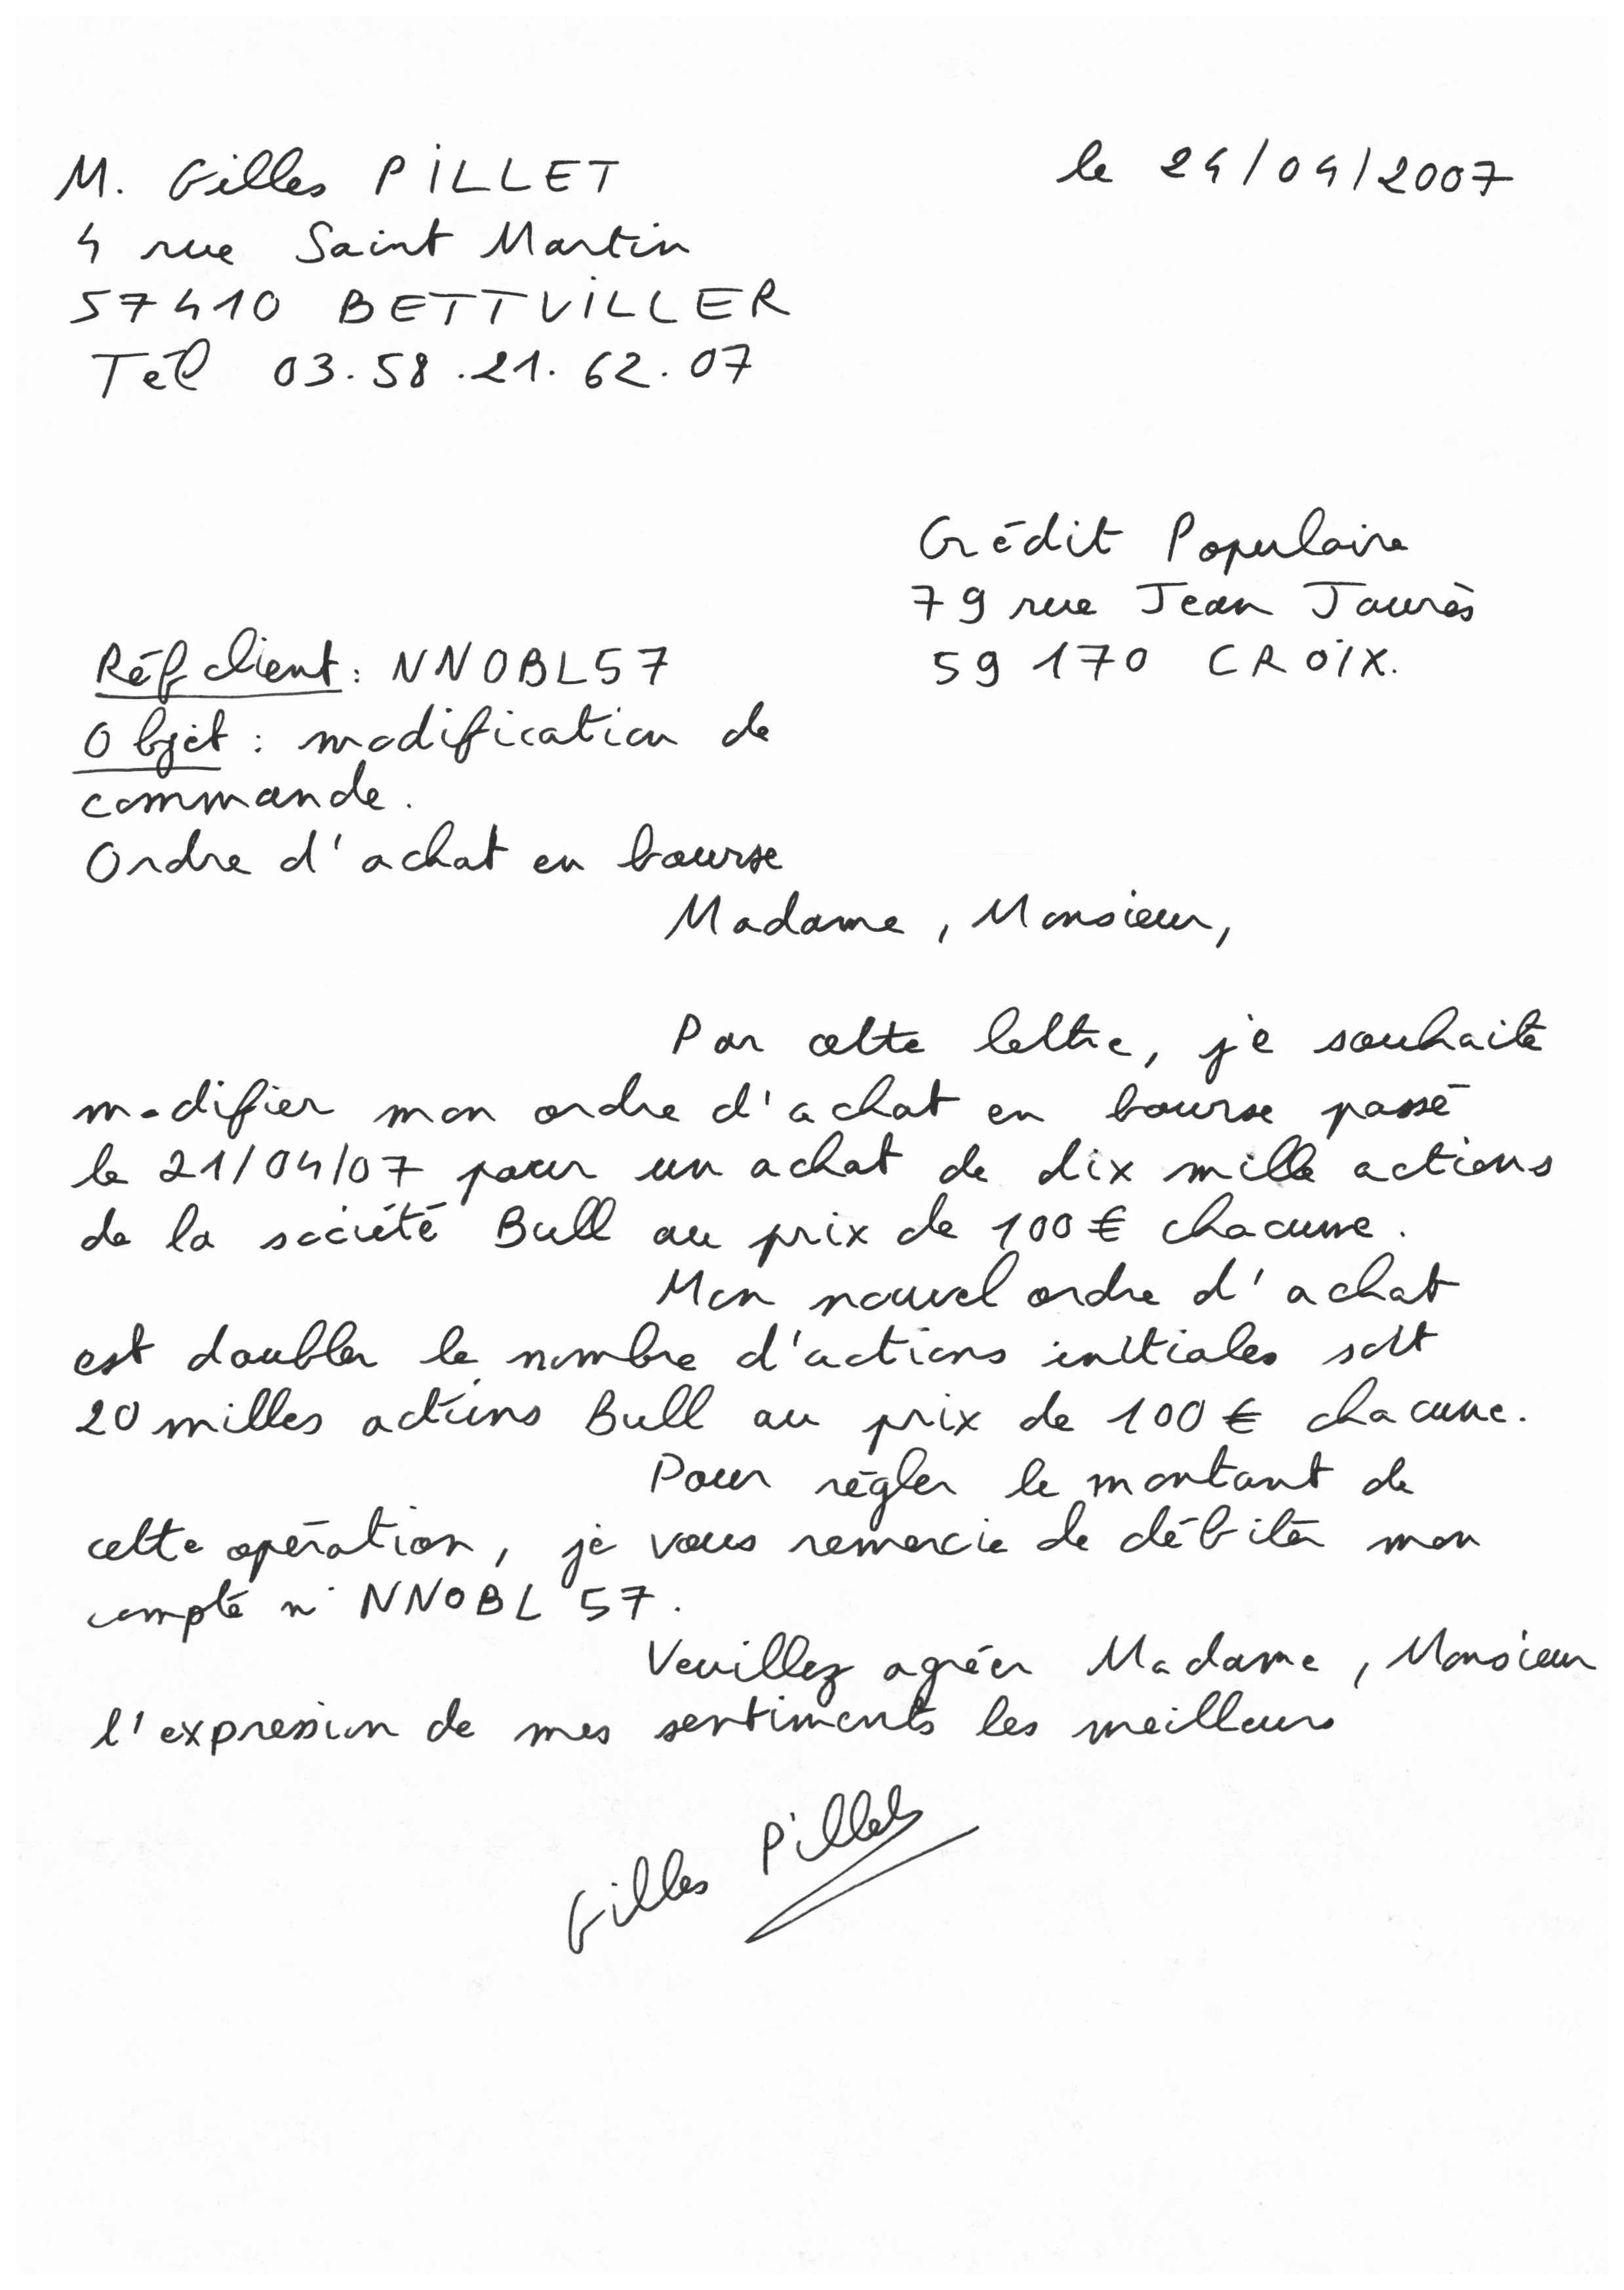 M. Gilles PILLET
le 24/04/2007
4 rue Saint Martin
57410 BETTVILLER
Tél 03.58.21.62.07
Crédit Populaire
79 rue Jean Jaurès
59170 CROIX.
Réf client : NNOBL57
Objet : modification de
commande.
Ordre d'achat en bourse
Madame, Monsieur,
Par cette lettre, je souhaite
modifier mon ordre d'achat en bourse passé
le 21/04/07 pour un achat de dix mille actions
de la société Bull au prix de 100€ chacune.
Mon nouvel ordre d'achat
est doubler le nombre d'actions initiales soit
20 milles actions Bull au prix de 100€ chacune.
Pour régler le montant de
cette opération, je vous remercie de débiter mon
compte n° NNOBL 57.
Veuillez agréer Madame, Monsieur
l'expression de mes sentiments les meilleurs
Gilles Pillet